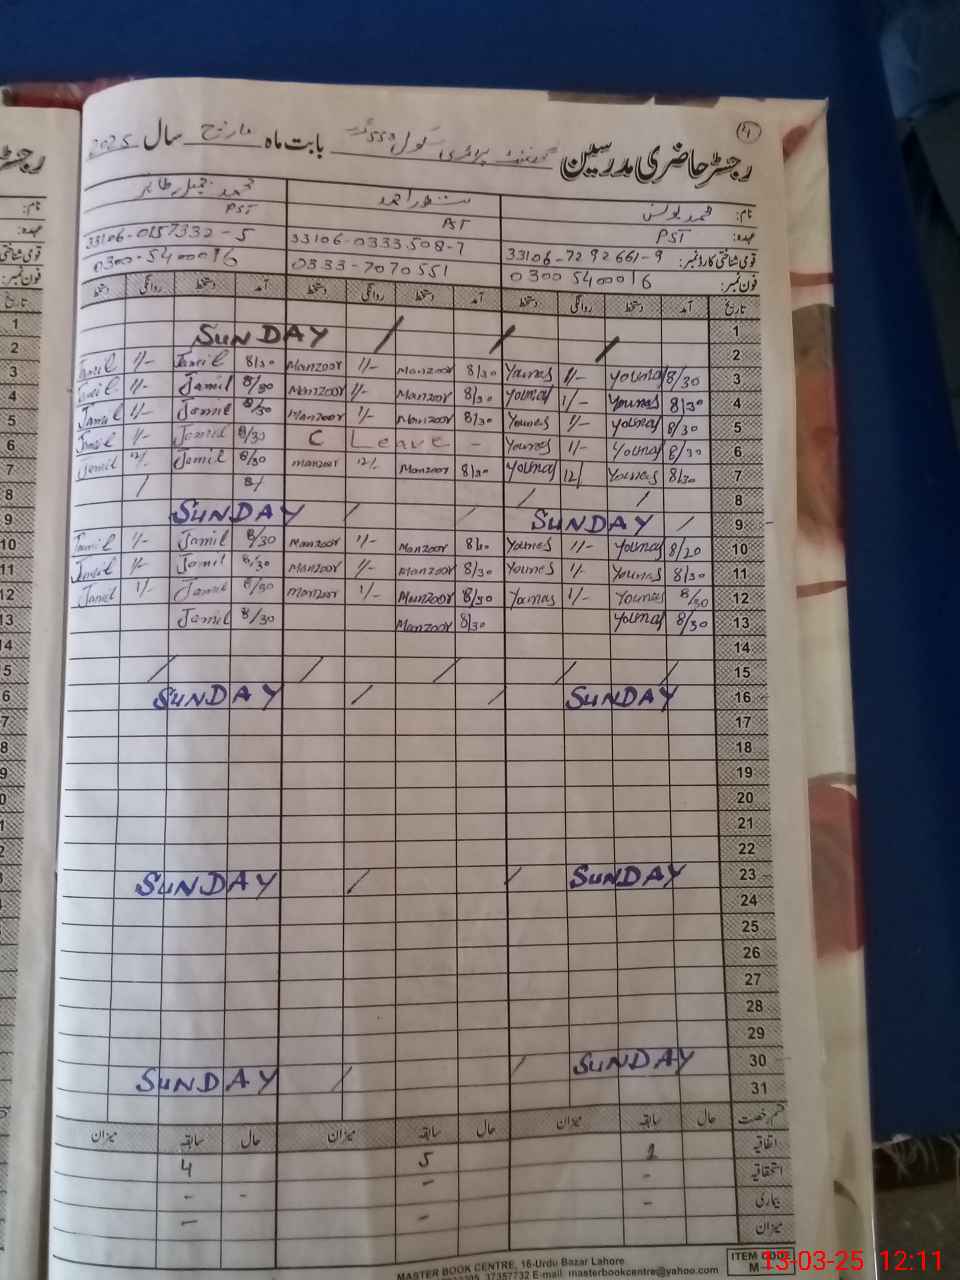 4
رجسٹر حاضری مدرسین گورنمنٹ پرائمری سکول 553 بابت ماہ مارچ سال 2025
نام: محمد یونس منظور احمد محمد جمیل طاہر
عہدہ: PST PST PST
قومی شناختی کارڈ نمبر: 33106-7292661-9 33106-0333508-7 33106-0157332-5
فون نمبر: 0300 5400016 0333-7070551 0300-5400016
تاریخ آمد دستخط روانگی دستخط آمد دستخط روانگی دستخط آمد دستخط روانگی دستخط تاریخ
1 1
2 SUNDAY 2
3 8/30 Younas 1/- Younas 8/30 Manzoor 1/- Manzoor 8/30 Jamil 1/- Jamil 3
4 8/30 Younas 1/- Younas 8/30 Manzoor 1/- Manzoor 8/30 Jamil 1/- Jamil 4
5 8/30 Younas 1/- Younas 8/30 Manzoor 1/- Manzoor 8/30 Jamil 1/- Jamil 5
6 8/30 Younas 1/- Younas - C Leave 8/30 Jamil 1/- Jamil 6
7 8/30 Younas 12/ Younas 8/30 Manzoor 12/- Manzoor 8/30 Jamil 12/- Jamil 7
8 8/ 8
9 SUNDAY SUNDAY 9
10 8/30 Younas 1/- Younas 8/30 Manzoor 1/- Manzoor 8/30 Jamil 1/- Jamil 10
11 8/30 Younas 1/- Younas 8/30 Manzoor 1/- Manzoor 8/30 Jamil 1/- Jamil 11
12 8/30 Younas 1/- Younas 8/30 Manzoor 1/- Manzoor 8/30 Jamil 1/- Jamil 12
13 8/30 Younas 8/30 Manzoor 8/30 Jamil 13
14 14
15 5
16 SUNDAY SUNDAY 6
17 7
18 8
19 9
20 0
21 1
22 2
23 SUNDAY SUNDAY 3
24
25
26
27
28
29
30 SUNDAY SUNDAY
31
قسم رخصت حال سابقہ میزان حال سابقہ میزان حال سابقہ میزان
اتفاقیہ 2 5 4
استحقاقیہ - - - -
بیماری - - -
میزان
ITEM CODE
M-
MASTER BOOK CENTRE, 16-Urdu Bazar Lahore
37357732 E-mail: masterbookcentre@yahoo.com
13-03-25 12:11